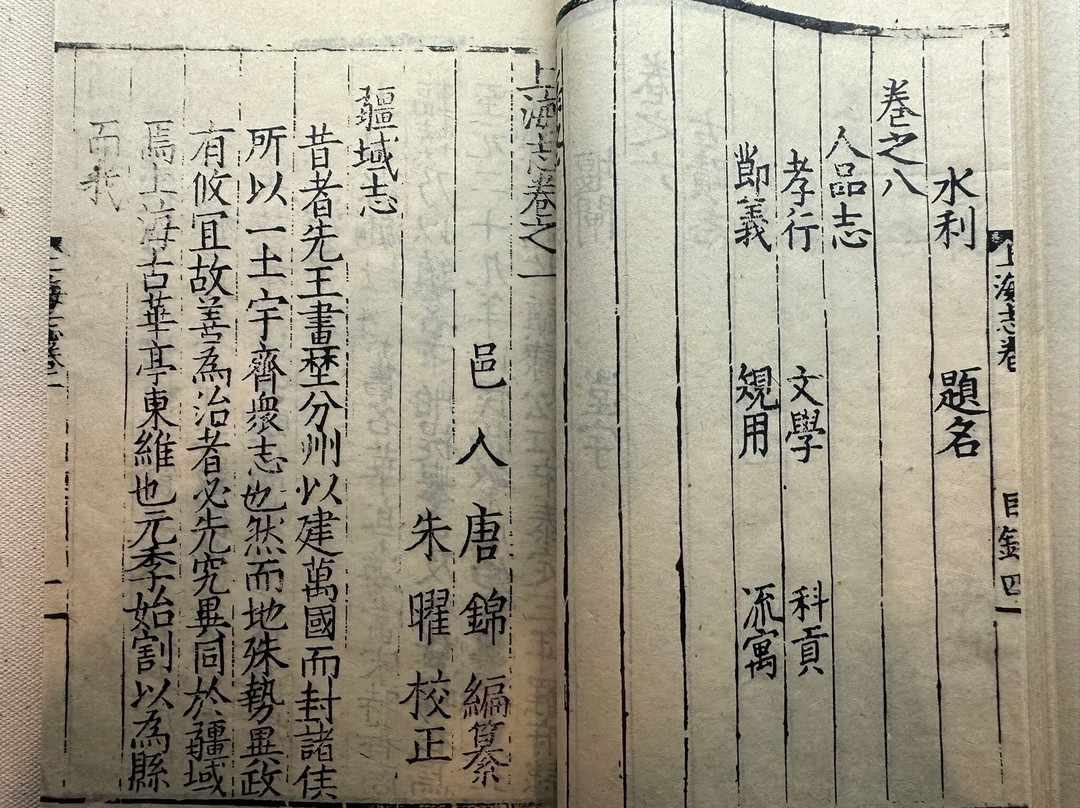 上海志卷 目錄 四
水利 題名
卷之八
人品志
孝行 文學 科貢
節義 規用 流寓
上海志卷之一
邑人唐錦編纂
朱曜校正
疆域志
昔者先王畫埜分州以建萬國而封諸侯
所以一土宇齊衆志也然而地殊勢異政
有攸宜故善為治者必先究異同於疆域
焉上海古華亭東維也元季始割以為縣
而我